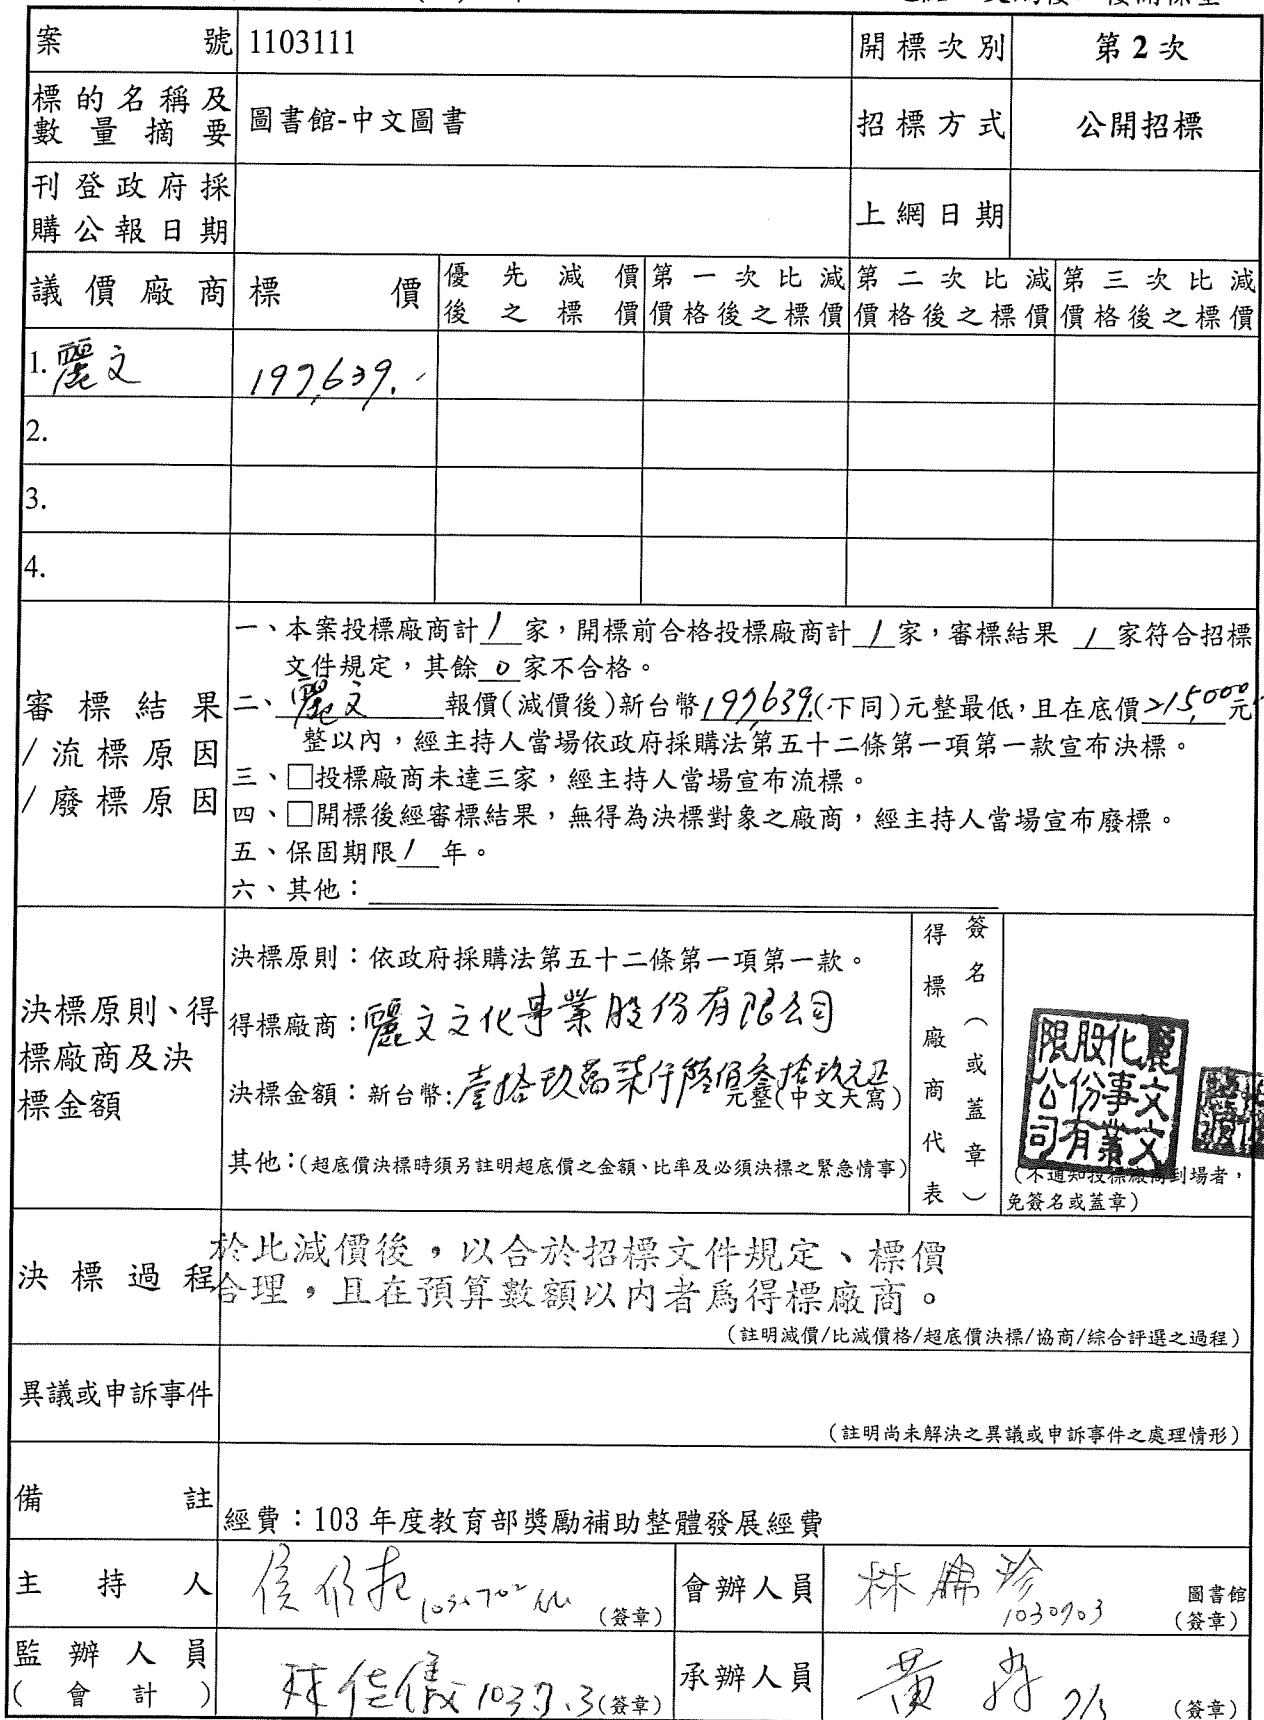 案號 1103111 開標次別 第2次
標的名稱及數量摘要 圖書館-中文圖書 招標方式 公開招標
刊登政府採購公報日期 上網日期
議價廠商 標價 優先減價後之標價 第一次比減價格後之標價 第二次比減價格後之標價 第三次比減價格後之標價
1. 麗文 197,639.
2.
3.
4.
審標結果/流標原因/廢標原因
一、本案投標廠商計 1 家，開標前合格投標廠商計 1 家，審標結果 1 家符合招標
文件規定，其餘 0 家不合格。
二、麗文 報價(減價後)新台幣197,639.(下同)元整最低，且在底價215,000元
整以內，經主持人當場依政府採購法第五十二條第一項第一款宣布決標。
三、□投標廠商未達三家，經主持人當場宣布流標。
四、□開標後經審標結果，無得為決標對象之廠商，經主持人當場宣布廢標。
五、保固期限 1 年。
六、其他：
決標原則、得標廠商及決標金額
決標原則：依政府採購法第五十二條第一項第一款。
得標廠商：麗文文化事業股份有限公司
決標金額：新台幣:壹拾玖萬柒仟陸佰參拾玖元正
元整(中文大寫)
其他：(超底價決標時須另註明超底價之金額、比率及必須決標之緊急情事)
得標廠商代表
簽名(或蓋章)
麗文文化事業股份有限公司
(不通知投標廠商到場者，
免簽名或蓋章)
決標過程
於此減價後，以合於招標文件規定、標價
合理，且在預算數額以內者為得標廠商。
(註明減價/比減價格/超底價決標/協商/綜合評選之過程)
異議或申訴事件
(註明尚未解決之異議或申訴事件之處理情形)
備註
經費：103 年度教育部獎勵補助整體發展經費
主持人 (簽章) 會辦人員 林 珍 1030703 圖書館
(簽章)
監辦人員(會計) 林佳儀 103.7.3 (簽章) 承辦人員 黃 7/3 (簽章)